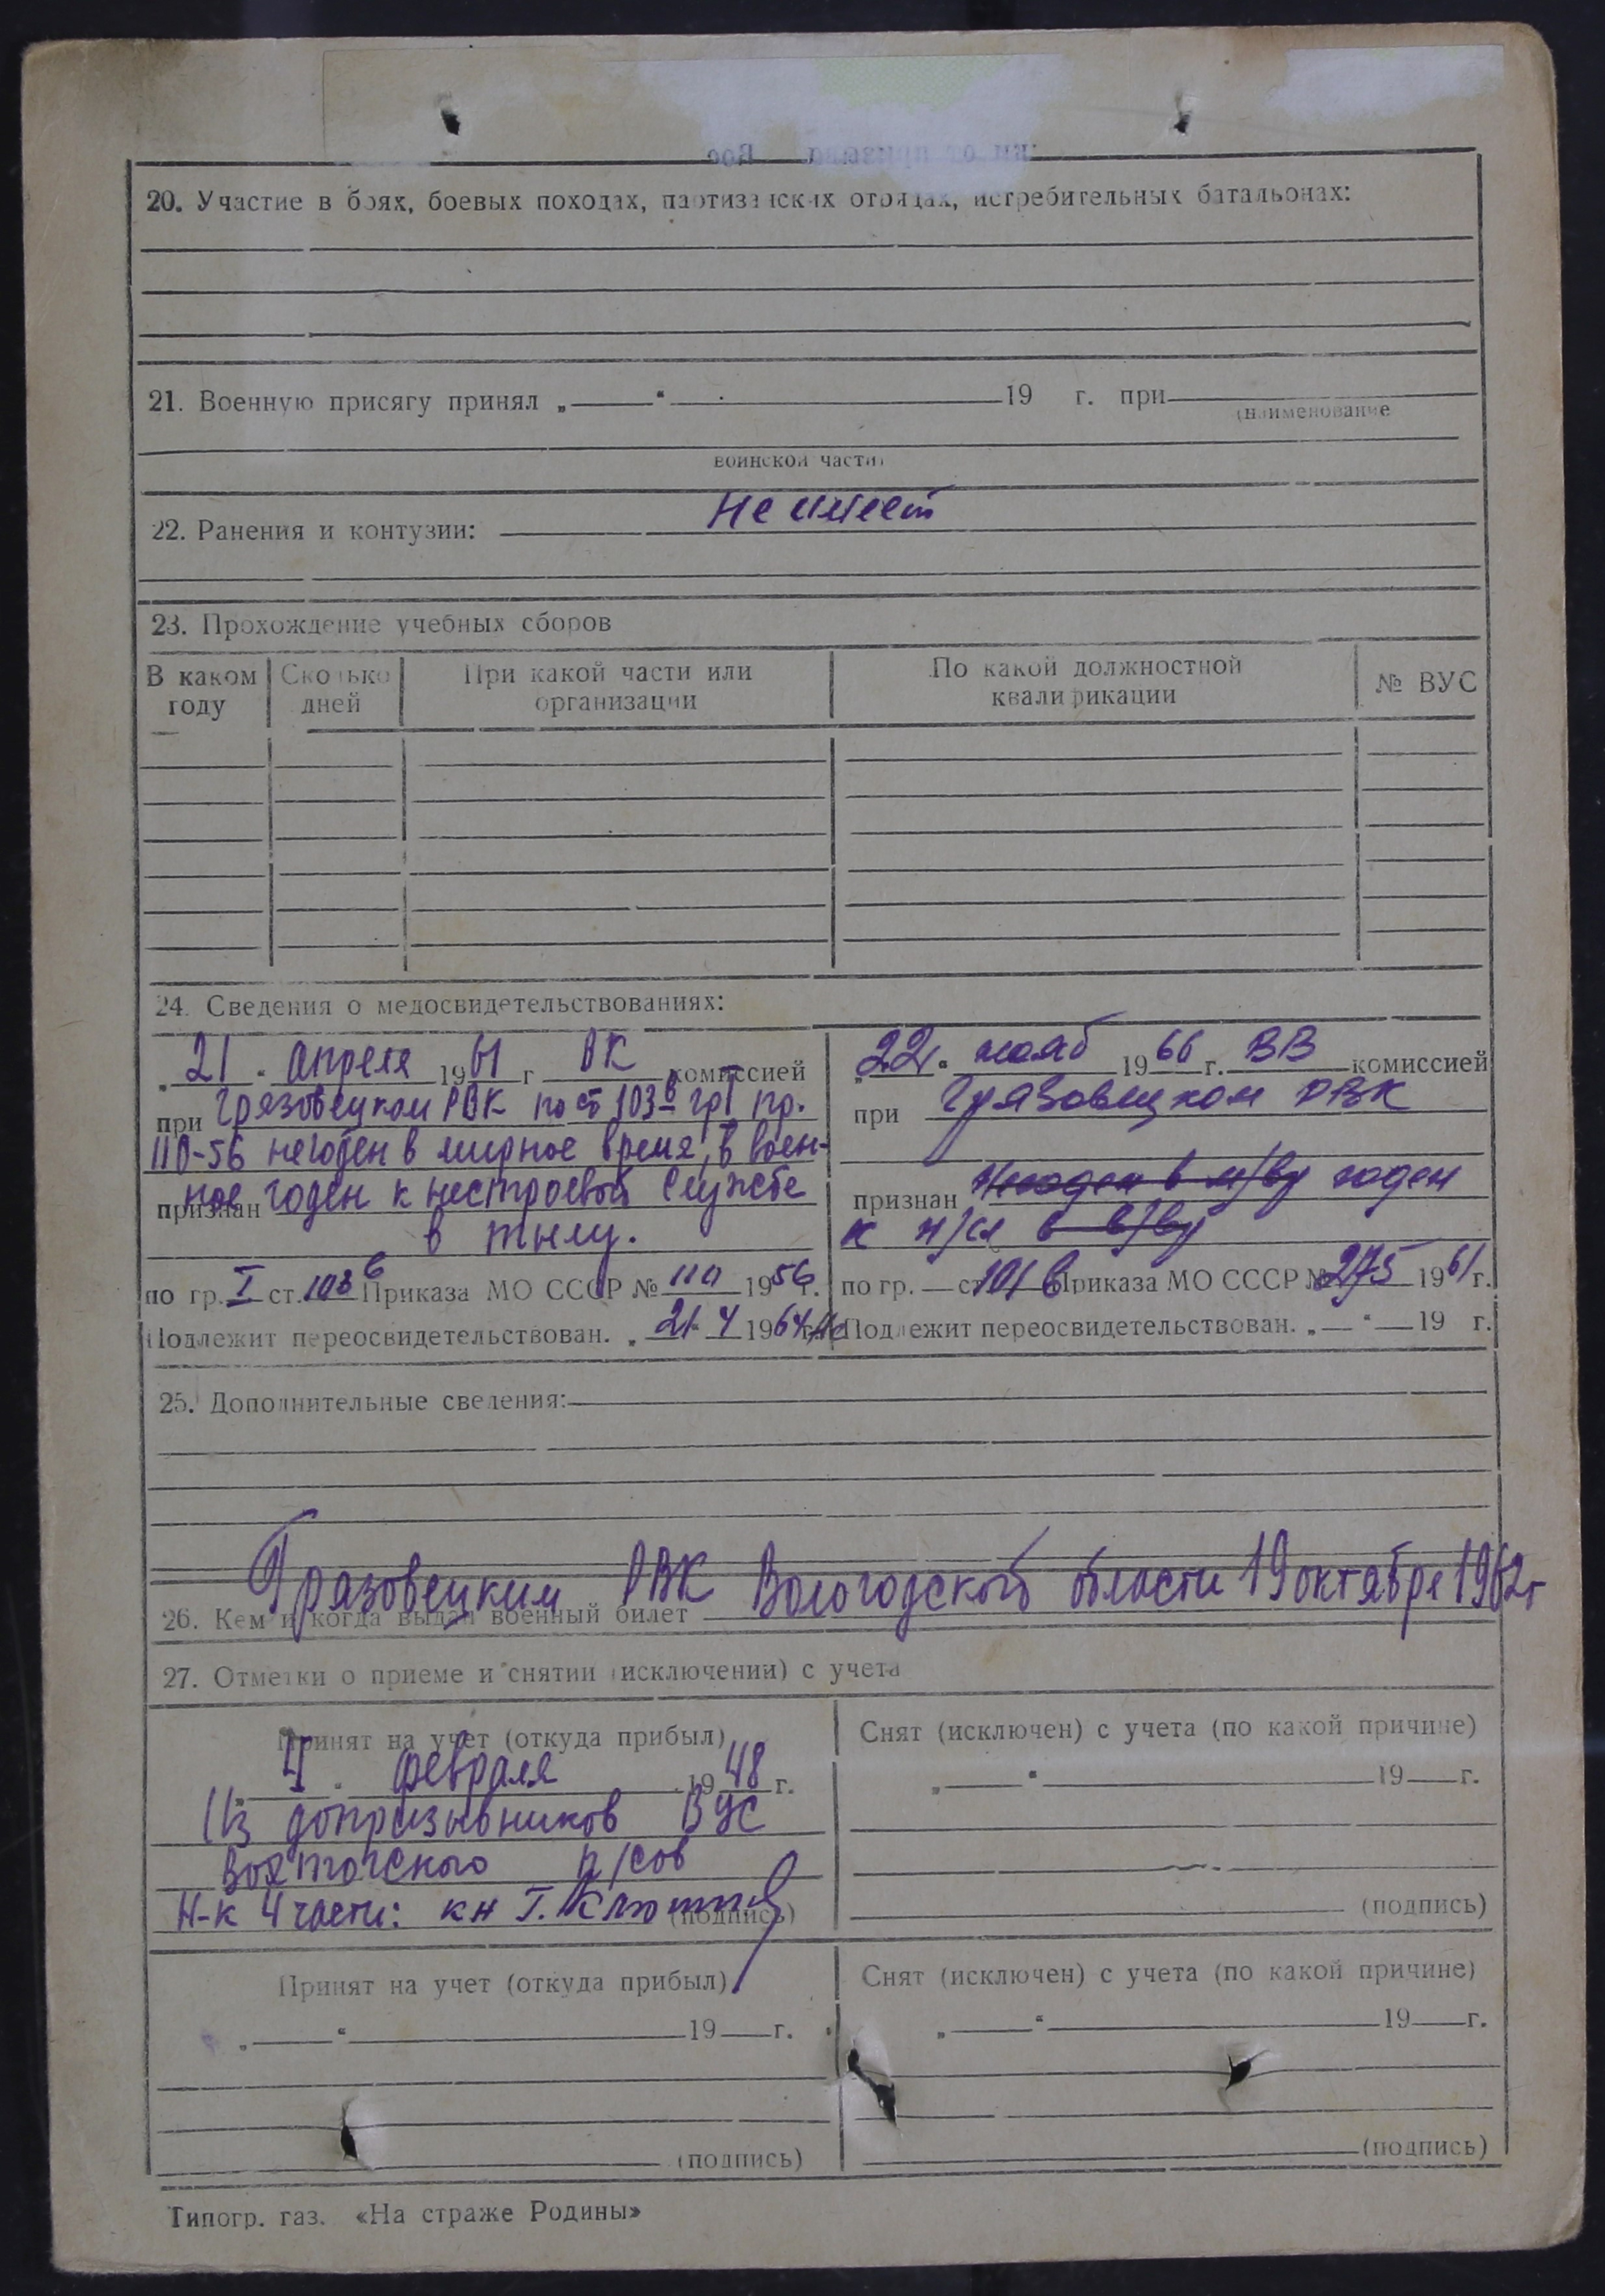 20. Участие в боях, боевых походах, партизанских отрядах, истребительных батальонах:
21. Военную присягу принял „ “ 19 г. при
(наименование
воинской части)
Не имеет
22. Ранения и контузии:
23. Прохождение учебных сборов
В каком году Сколько дней При какой части или организации По какой должностной квалификации № ВУС
24. Сведения о медосвидетельствованиях:
„21“ апреля 1961 г ВК комиссией
при Грязовецком РВК по ст 103б гр I пр.
110-56 негоден в мирное время, в воен-
ное годен к нестроевой службе
признан
в тылу.
по гр. I ст. 103б Приказа МО СССР № 110 1956 г.
Подлежит переосвидетельствован. „21“ 4 1964 г.
„22“ нояб 1966 г. ВВ комиссией
при Грязовецком РВК
признан Негоден в м/вр годен
к н/сл в в/вр
по гр. — ст 101 в Приказа МО СССР № 275 1961 г.
Подлежит переосвидетельствован. „—“ — 19 г.
25. Дополнительные сведения:
Грязовецким РВК Вологодской области 19 октября 1962 г
26. Кем и когда выдан военный билет
27. Отметки о приеме и снятии (исключении) с учета
Принят на учет (откуда прибыл)
„4“ февраля 1948 г.
Из допризывников ВУС
п/сов
Н-к 4 части: к-н
(подпись)
Снят (исключен) с учета (по какой причине)
„ “ 19 г.
(подпись)
Принят на учет (откуда прибыл)
„ “ 19 г.
(подпись)
Снят (исключен) с учета (по какой причине)
„ “ 19 г.
(подпись)
Типогр. газ. «На страже Родины»